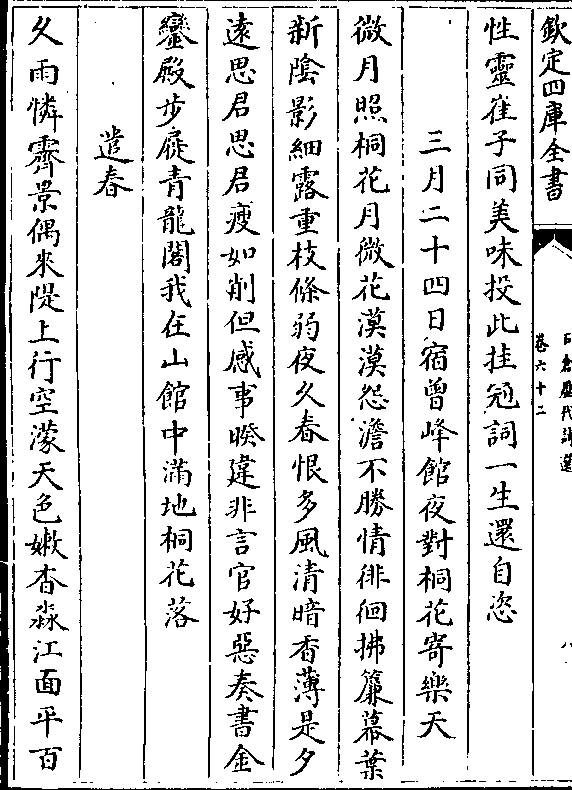 欽定四庫全書
石倉歷代詩選
卷六十二
八
性靈崔子同美味投此挂冠詞一生還自恣
三月二十四日宿曾峰館夜對桐花寄樂天
微月照桐花月微花漠漠怨澹不勝情徘徊拂簾幕葉
新陰影細露重枝條弱夜久春恨多風清暗香薄是夕
遠思君思君瘦如削但感事暌違非言官好惡奏書金
鑾殿步屧青龍閣我在山館中滿地桐花落
遣春
久雨憐霽景偶來隄上行空濛天色嫩杳淼江面平百